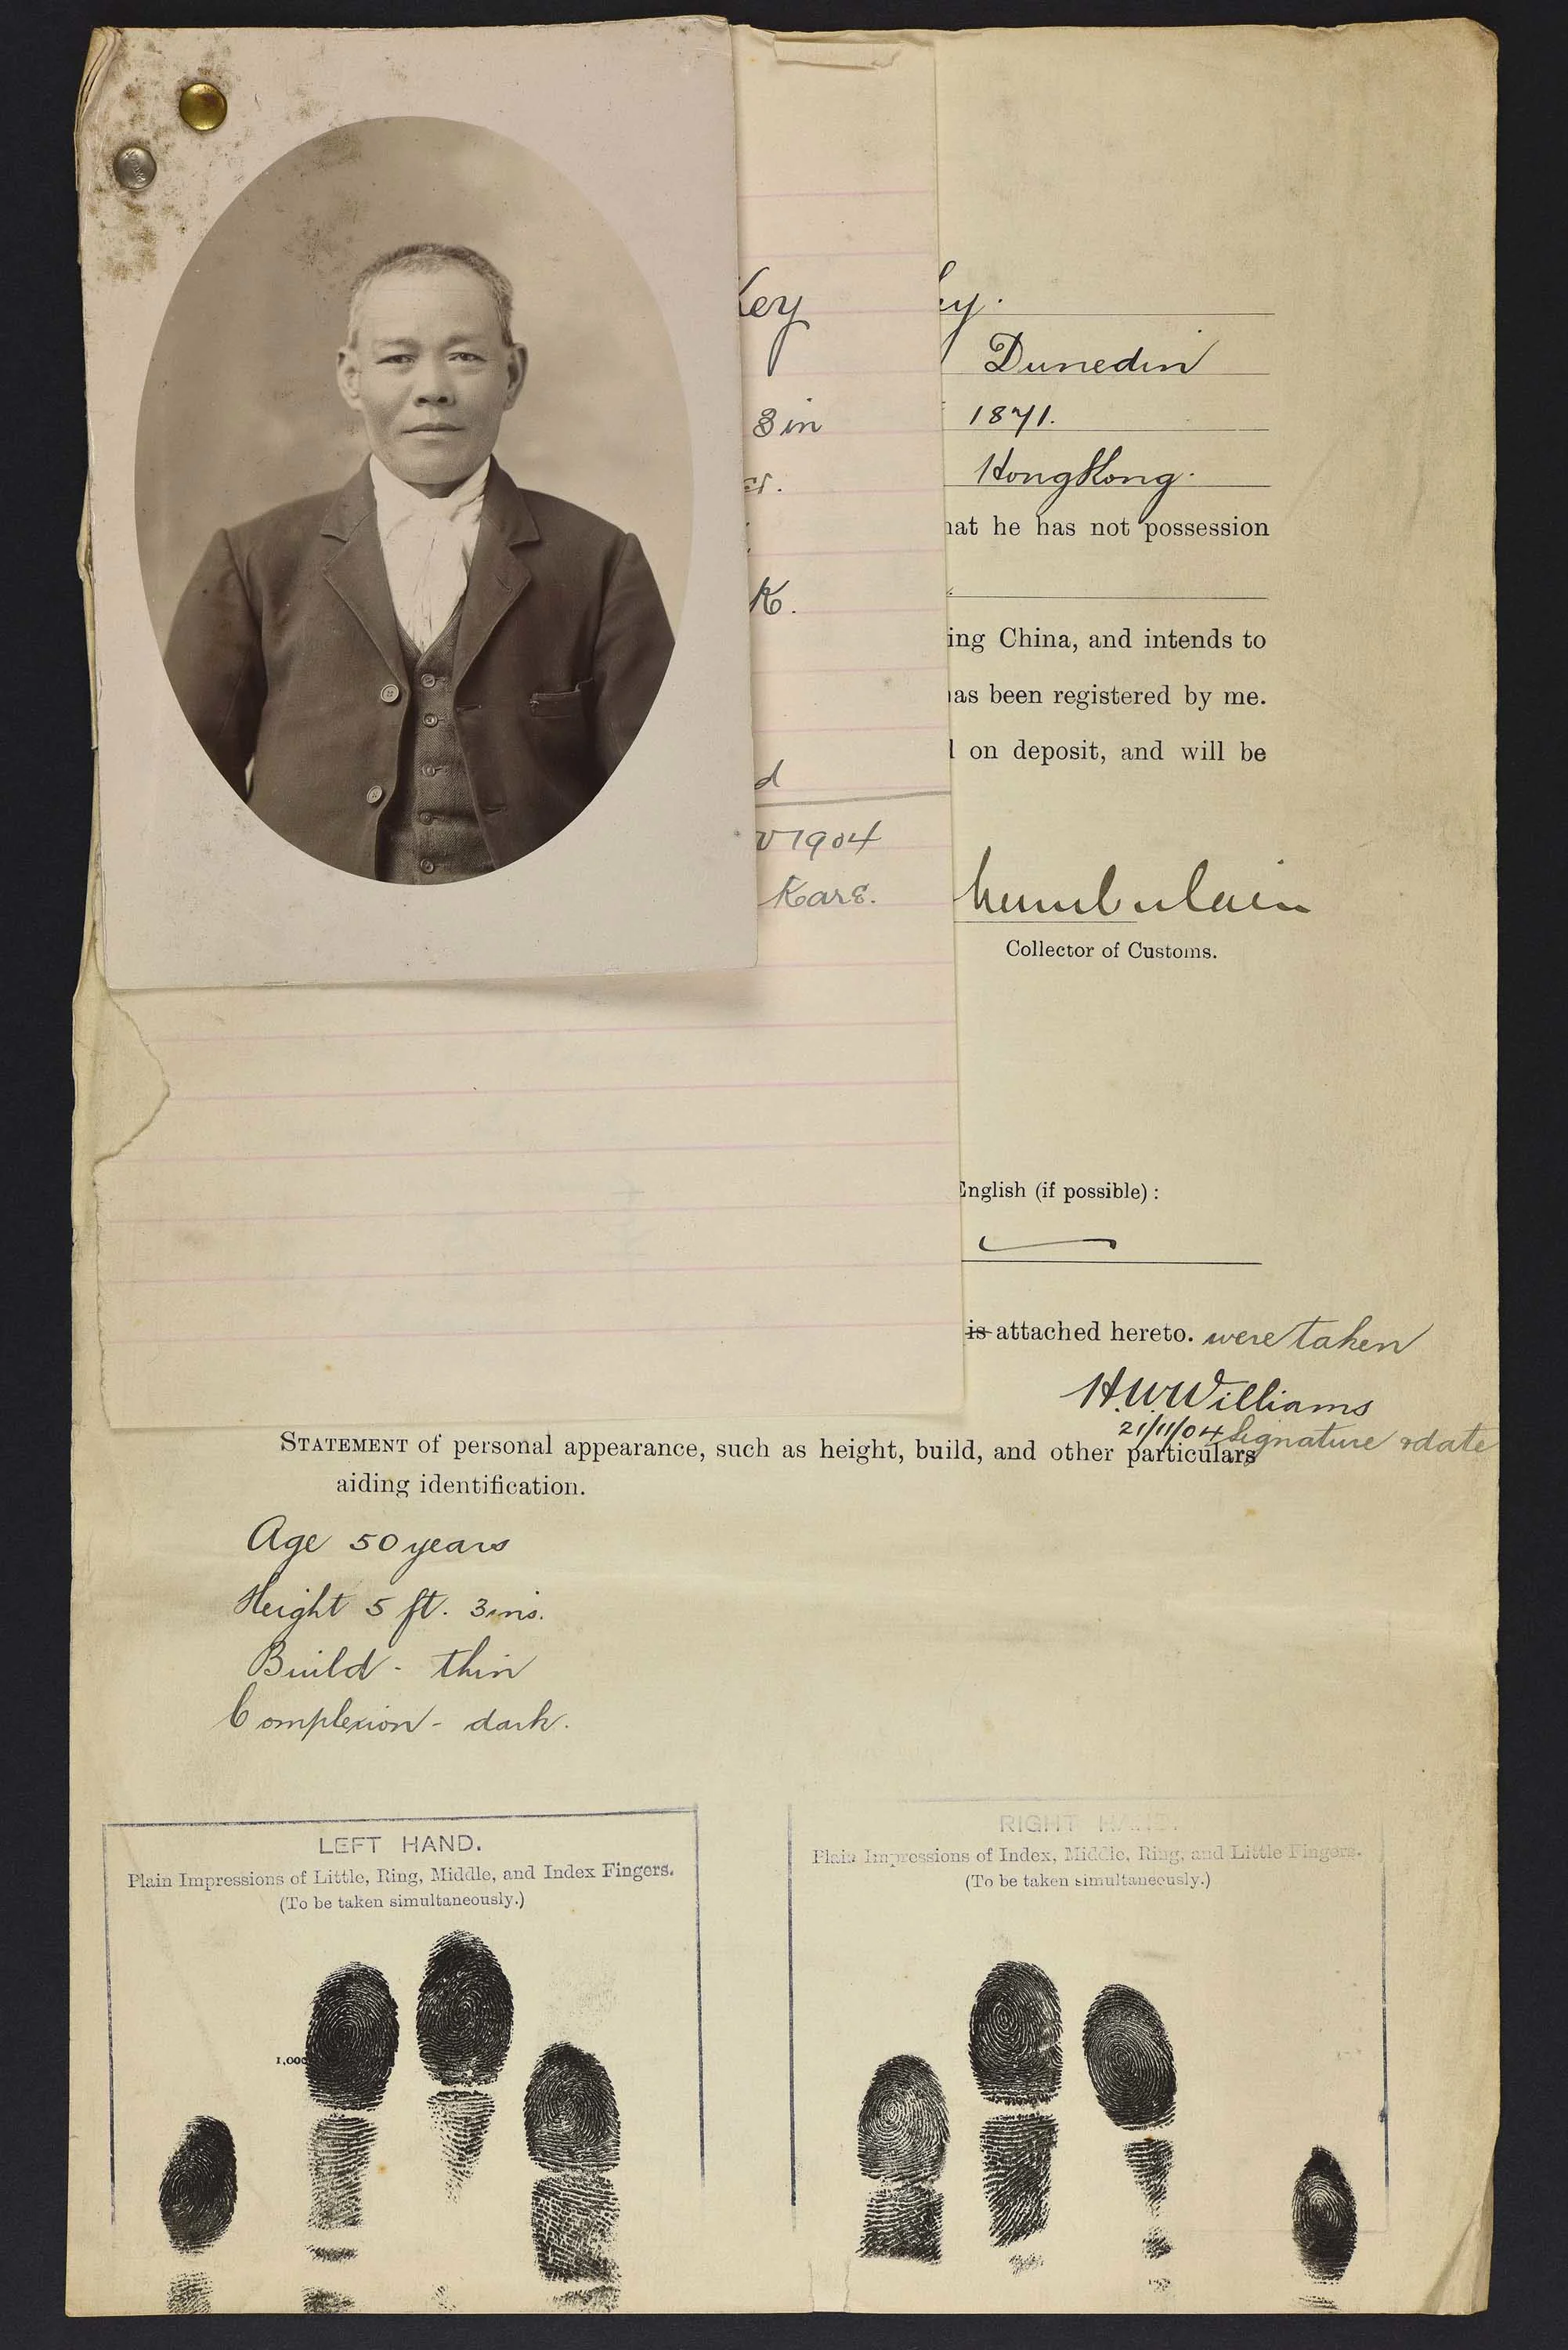 Key
ey.
Dunedin
3 in
1871.
er.
HongKong.
hat he has not possession
K.
ing China, and intends to
has been registered by me.
d
l on deposit, and will be
v 1904
Kare.
Collector of Customs.
English (if possible) :
is attached hereto. were taken
H.W. Williams
21/11/04 Signature & date
STATEMENT of personal appearance, such as height, build, and other particulars
aiding identification.
Age 50 years
Height 5 ft. 3 ins.
Build - thin
Complexion - dark.
LEFT HAND.
Plain Impressions of Little, Ring, Middle, and Index Fingers.
(To be taken simultaneously.)
1,000
RIGHT HAND.
Plain Impressions of Index, Middle, Ring, and Little Fingers.
(To be taken simultaneously.)